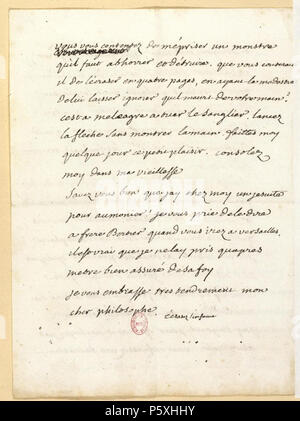 vous vous contentez de mépriser un monstre
qu'il faut abhorrer et détruire. que vous couteroit
il de l'ecraser en quatre pages, en ayant la modestie
de lui laisser ignorer qu'il meurt de votre main?
c'est a meleagre a tuer le sanglier. lancez
la fleche sans montrer la main. faittes moy
quelque jour ce petit plaisir. consolez
moy dans ma vieillesse.
Savez vous bon que jay chez moy un jesuite
pour aumonier? je vous prie de le dire
a frere Bertier quand vous irez a versailles.
il est vrai que je ne lay pris quapres
metre bien assuré de sa foy
je vous embrasse tres tendrement mon
cher philosophe. écrasez linfame
alamy
P5XHHY
www.alamy.com